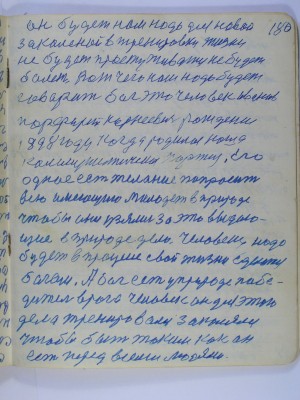 он будет нам надо для новой 180
закалкой в тренировки жизни
не будет простуживаться не будет
болеть Вот чего нам надо будет
говорит Бог это человек Иванов
Порфирий Корнеевич рождения
1898 году Когда родилась наша
Коммунистическая партия, Его
одно есть желание попросить
всю имеющую молодежь в природе
чтобы они взялись за это выдаю-
щие в природе дело. Человеку надо
будет в процессе своей жизни сделать
Богом, А Бог есть у природе побе-
дитель врага человек он для этого
дела тренировался закалялся
чтобы быть таким как он
есть перед всеми людями.